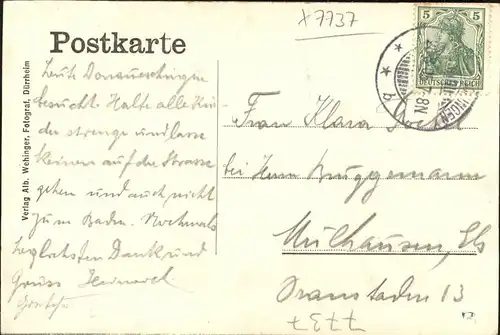 x 7737
Postkarte
5 5
DEUTSCHES REICH
Heute Donaueschingen
besucht. Halte alle Kin-
der strenge und lasse
keinen auf die Strasse
gehen und auch nicht
zum Baden. Nochmals
herzlichsten Dank und
Gruss
Frau Klara
bei Herrn Bruggemann
Mülhausen, Els
13
7737
Verlag Alb. Wehinger, Fotograf, Dürrheim